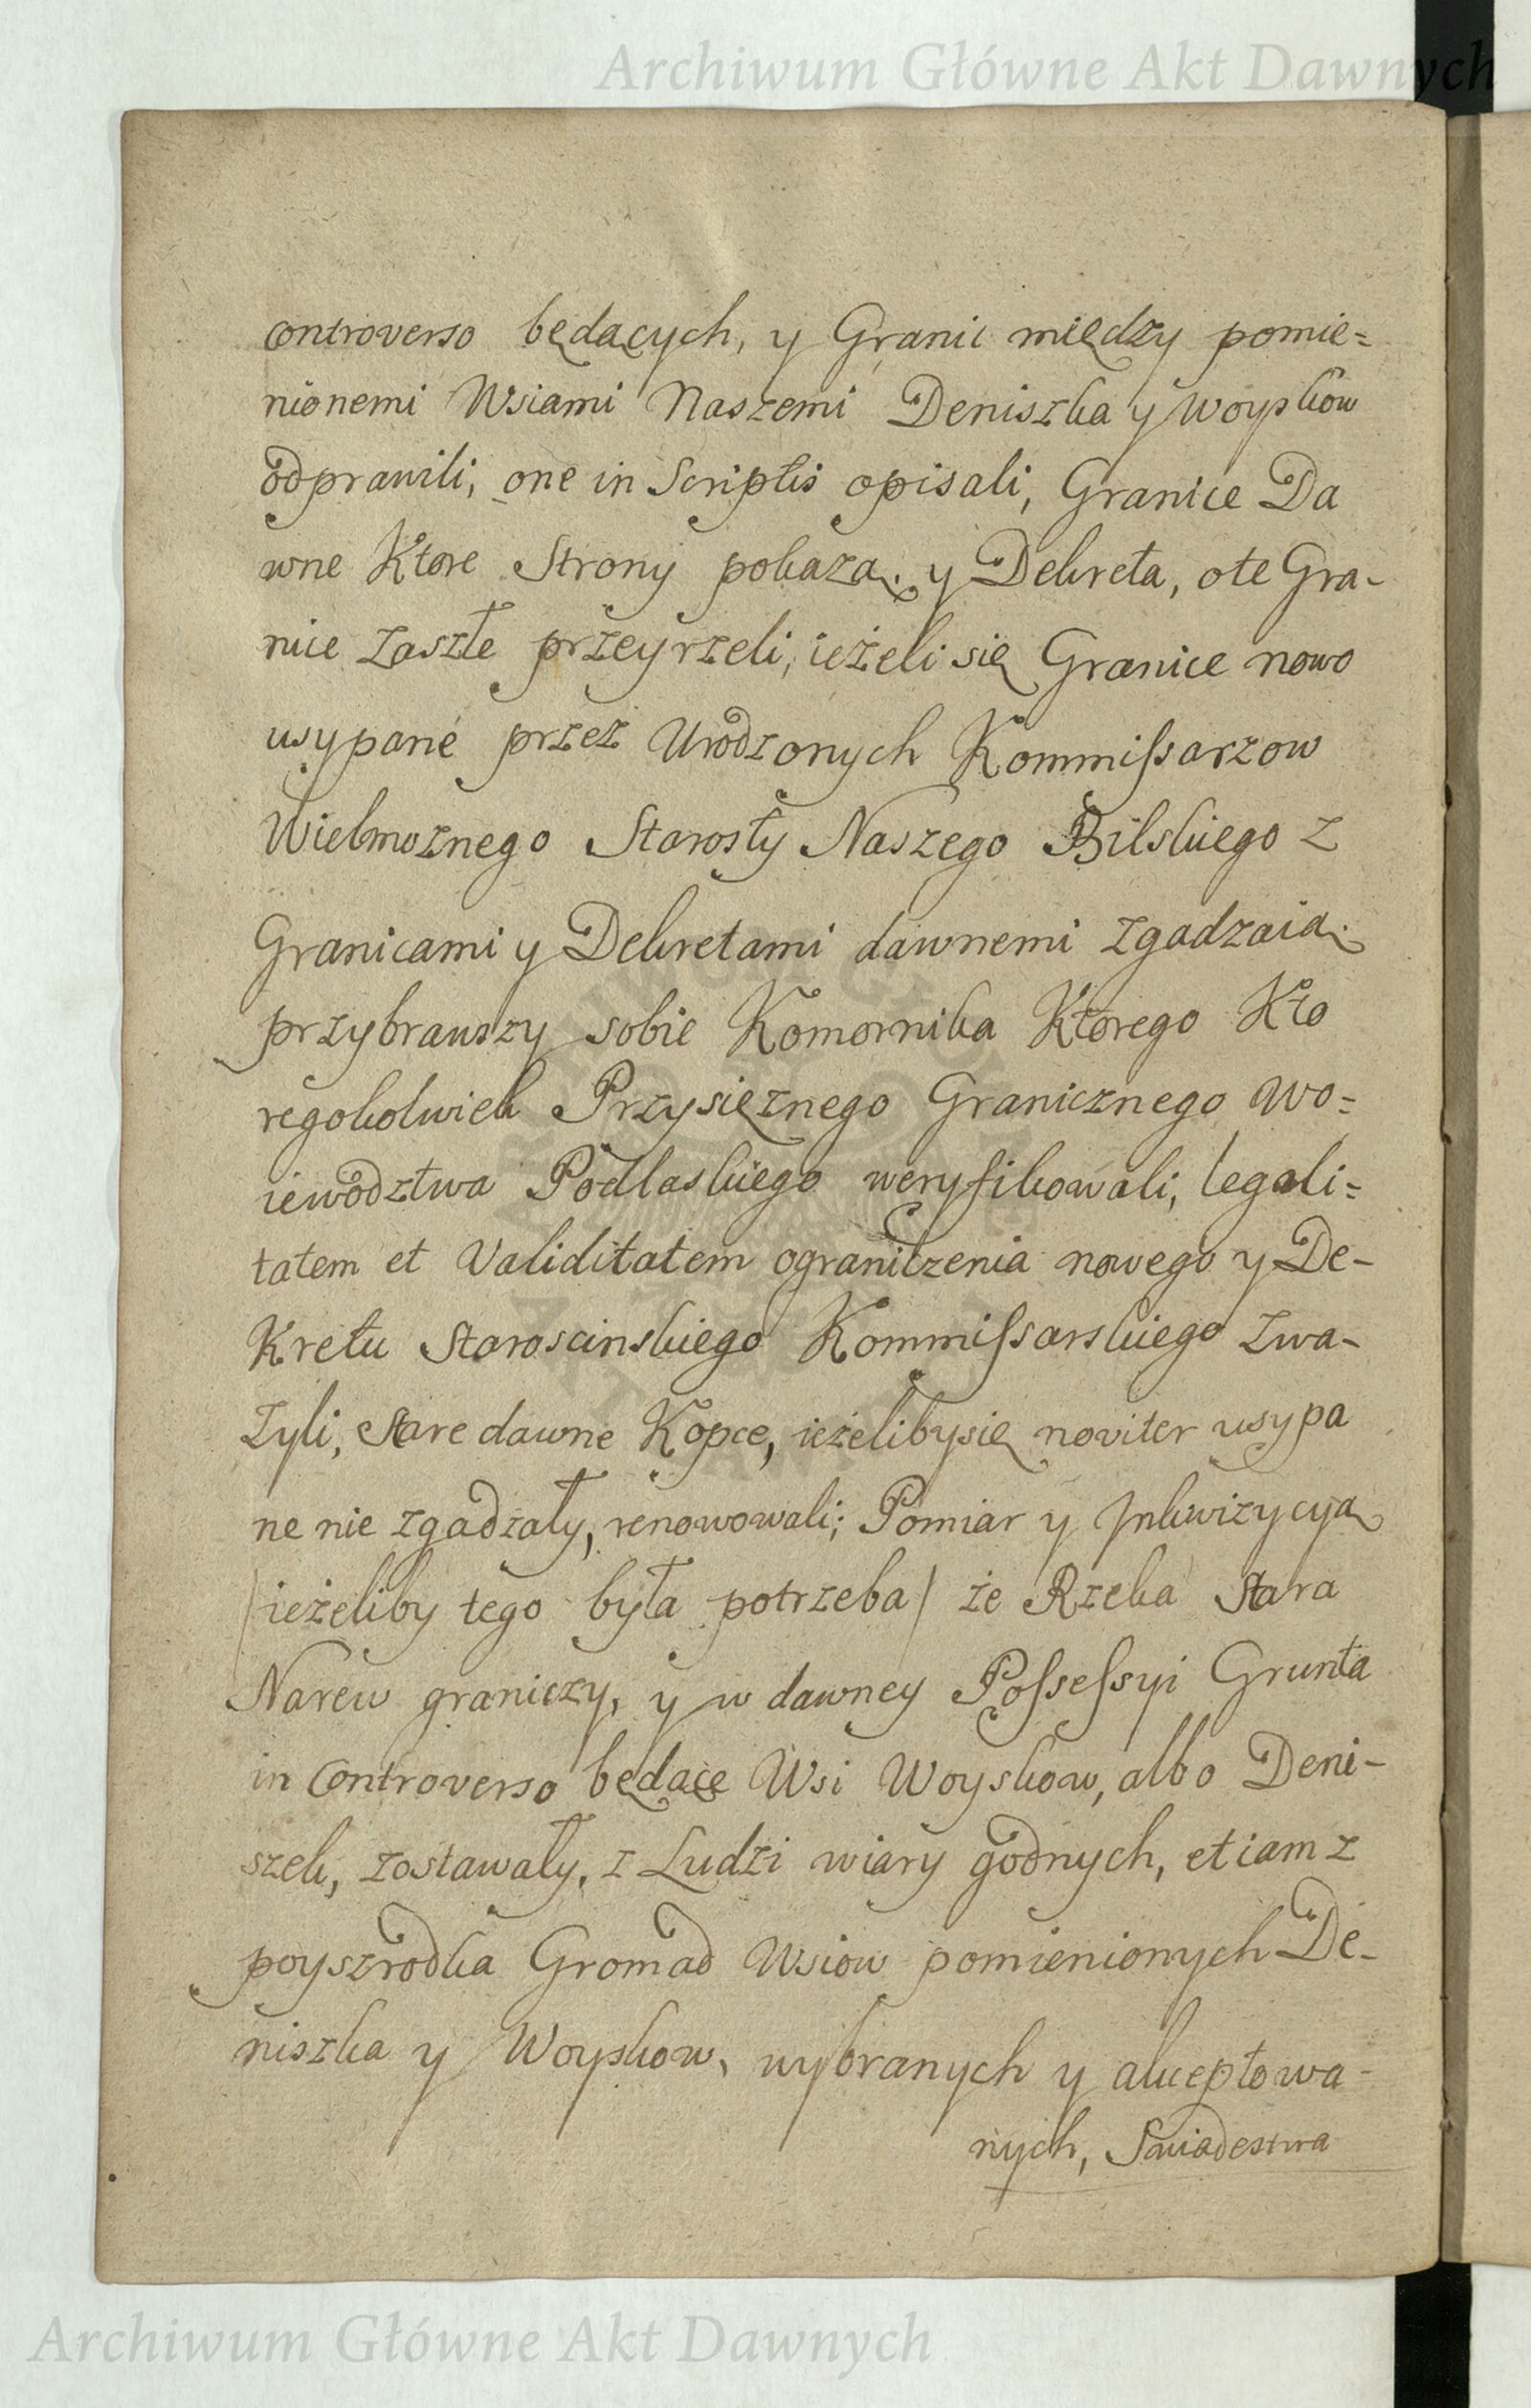 Archiwum Główne Akt Dawnych
controverso będących, y Granic między pomie=
nionemi Wsiami Naszemi Deniszka y Woyskow
odprawili, one in Scriptis opisali, Granice Da
wne Ktore Strony pokażą. y Dekreta, o te Gra-
nice zaszłe przeyrzeli, ieżeli się Granice nowo
usypane przez Urodzonych Kommissarzow
Wielmoznego Starosty Naszego Bilskiego z
Granicami y Dekretami dawnemi zgadzaią.
przybrawszy sobie Komornika Ktorego Kto
regokolwiek Przysięznego Granicznego Wo=
iewodztwa Podlaskiego weryfikowali, legali=
tatem et Validitatem ograniczenia nowego y De-
Kretu Staroscinskiego Kommissarskiego zwa-
zyli, Stare dawne Kopce, ieżelibysię noviter usypa
ne nie zgadzały, renowowali; Pomiar y Jnkwizycyą
/ieżeliby tego była potrzeba/ że Rzeka Stara
Narew graniczy, y w dawney Possessyi Grunta
in Controverso będące Wsi Woyskow, albo Deni-
szek, zostawały, z Ludzi wiary godnych, etiam z
poyszrodka Gromad Wsiow pomienionych De-
niszka y Woyskow, wybranych y akceptowa-
nych, Swiadestwa
Archiwum Główne Akt Dawnych